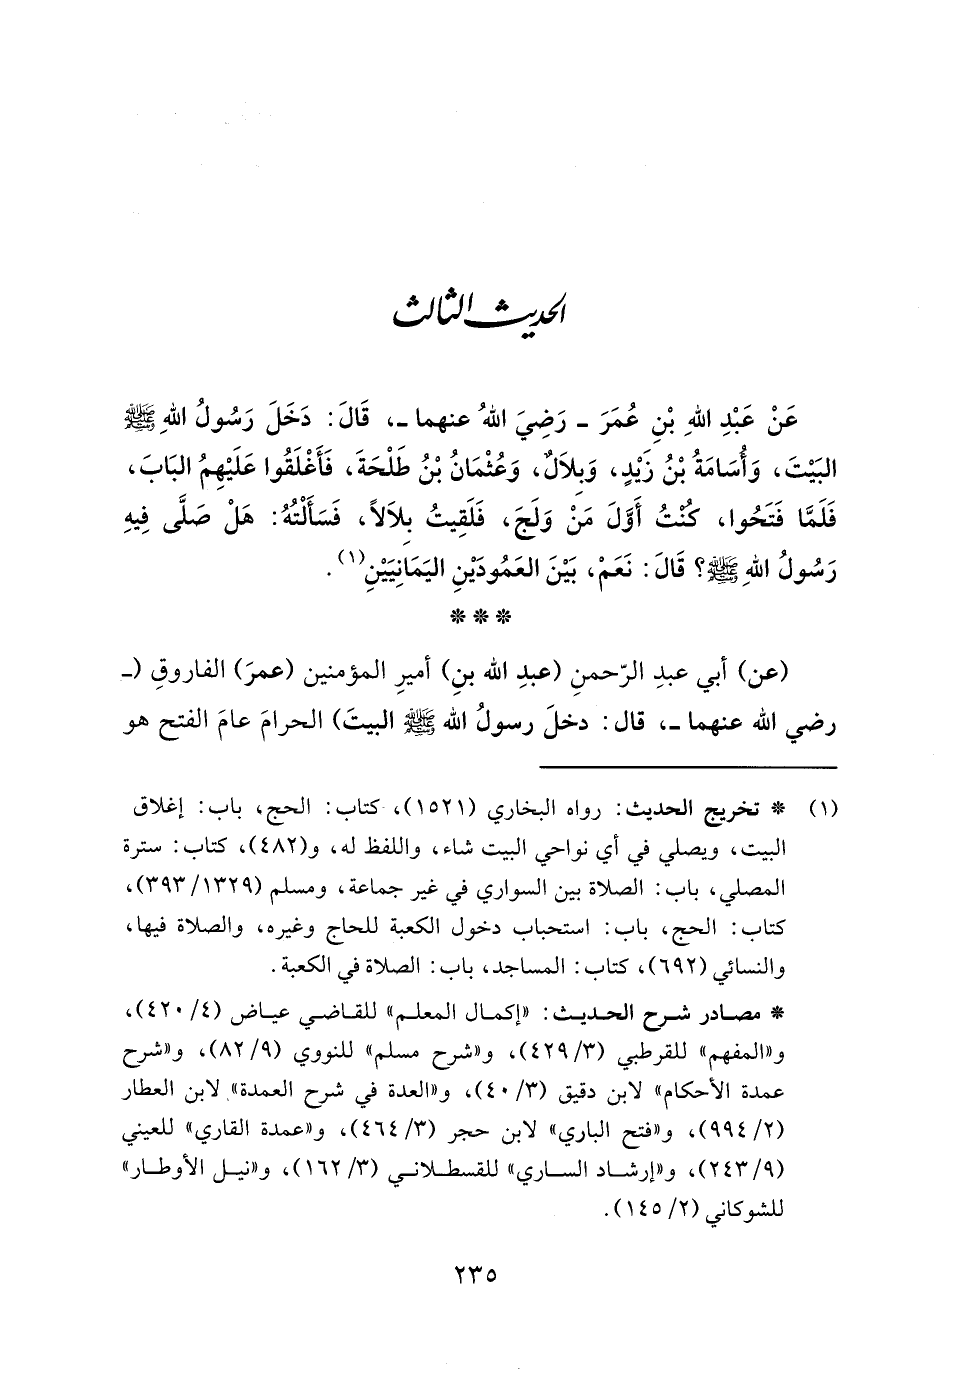 الحديث الثالث
عَنْ عَبْدِ اللهِ بْنِ عُمَرَ ـ رَضِيَ اللهُ عنهما ـ، قَالَ: دَخَلَ رَسُولُ اللهِ ﷺ
البَيْتَ، وَأُسَامَةُ بْنُ زَيْدٍ، وَبِلَالٌ، وَعُثْمَانُ بْنُ طَلْحَةَ، فَأَغْلَقُوا عَلَيْهِمُ البَابَ،
فَلَمَّا فَتَحُوا، كُنْتُ أَوَّلَ مَنْ وَلَجَ، فَلَقِيتُ بِلَالاً، فَسَأَلْتُهُ: هَلْ صَلَّى فِيهِ
رَسُولُ اللهِ ﷺ؟ قَالَ: نَعَمْ، بَيْنَ العَمُودَيْنِ اليَمَانِيَيْنِ(١).
* * *
(عن) أبي عبدِ الرّحمنِ (عبدِ الله بنِ) أميرِ المؤمنين (عمرَ) الفاروقِ (ـ
رضي الله عنهما ـ، قال: دخلَ رسولُ الله ﷺ البيتَ) الحرامَ عامَ الفتح هو
(١) * تخريج الحديث: رواه البخاري (١٥٢١)، كتاب: الحج، باب: إغلاق
البيت، ويصلي في أي نواحي البيت شاء، واللفظ له، و(٤٨٢)، كتاب: سترة
المصلي، باب: الصلاة بين السواري في غير جماعة، ومسلم (١٣٢٩/ ٣٩٣)،
كتاب: الحج، باب: استحباب دخول الكعبة للحاج وغيره، والصلاة فيها،
والنسائي (٦٩٢)، كتاب: المساجد، باب: الصلاة في الكعبة.
* مصادر شرح الحديث: «إكمال المعلم» للقاضي عياض (٤/ ٤٢٠)،
و«المفهم» للقرطبي (٣/ ٤٢٩)، و«شرح مسلم» للنووي (٩/ ٨٢)، و«شرح
عمدة الأحكام» لابن دقيق (٣/ ٤٠)، و«العدة في شرح العمدة» لابن العطار
(٢/ ٩٩٤)، و«فتح الباري» لابن حجر (٣/ ٤٦٤)، و«عمدة القاري» للعيني
(٩/ ٢٤٣)، و«إرشاد الساري» للقسطلاني (٣/ ١٦٢)، و«نيل الأوطار»
للشوكاني (٢/ ١٤٥).
٢٣٥